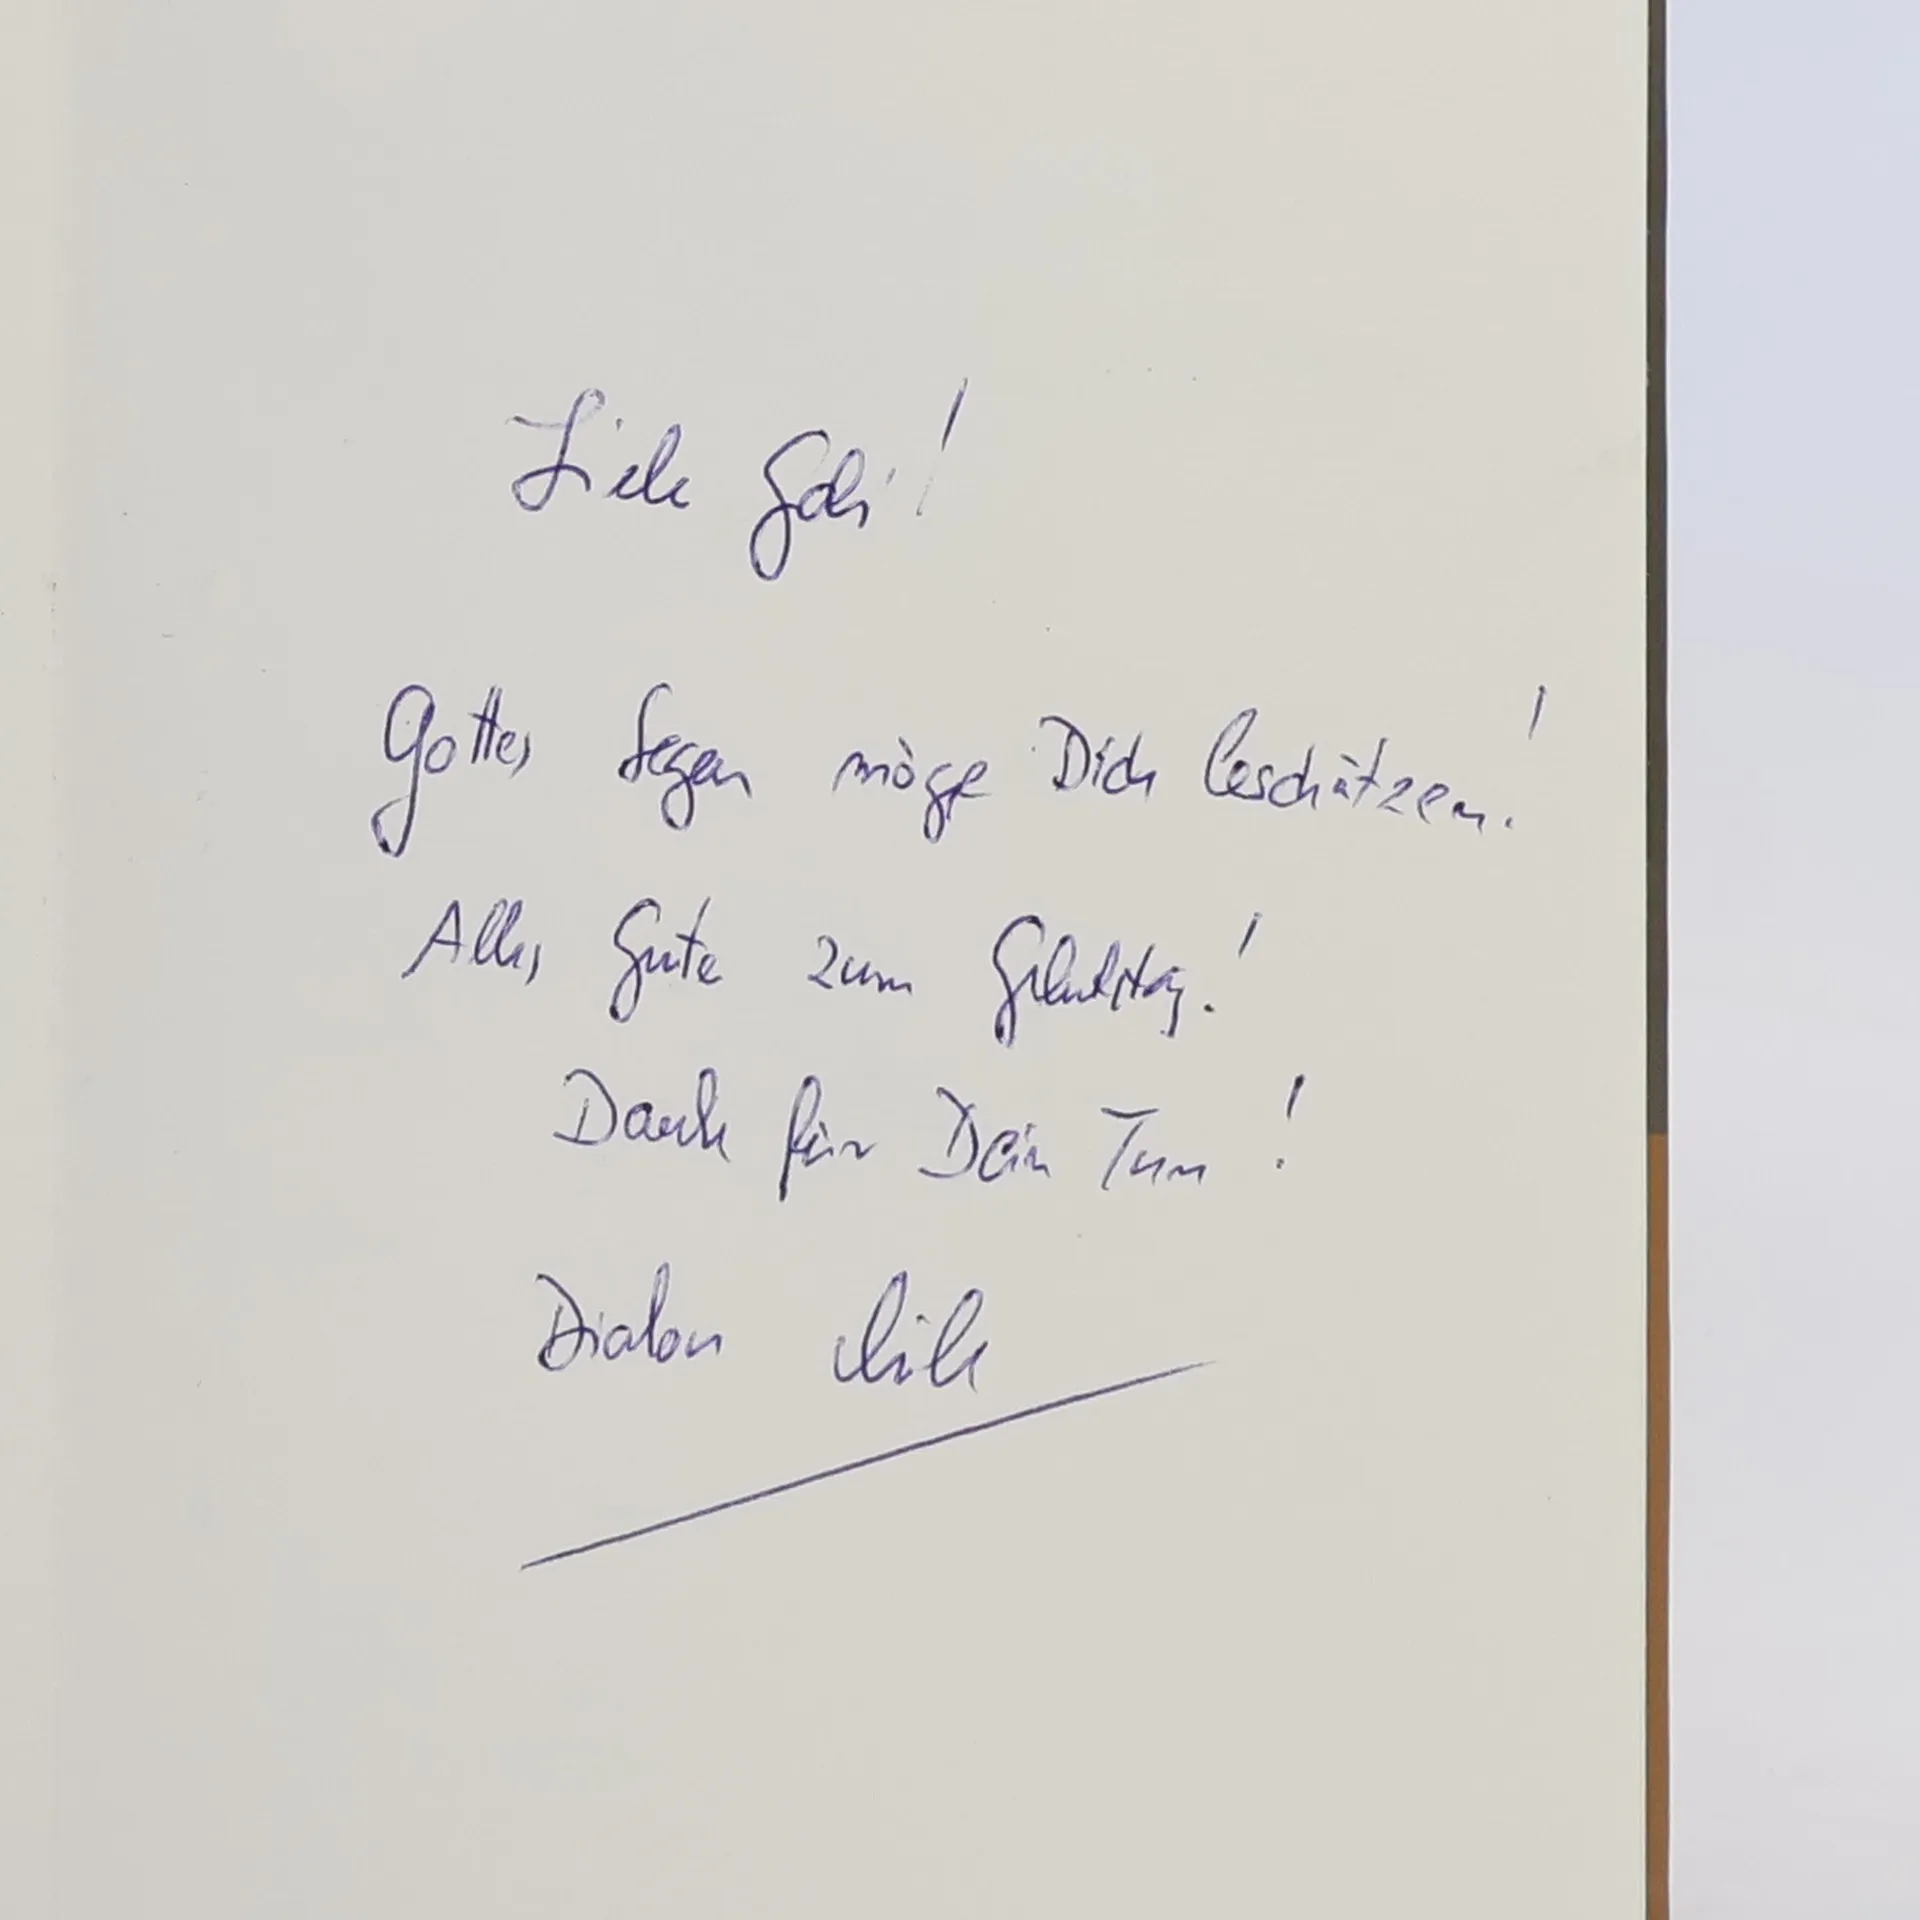 Liebe Gabi!
Gottes Segen möge Dich beschützen!
Alles Gute zum Geburtstag!
Dank für Dein Tun!
Diakon